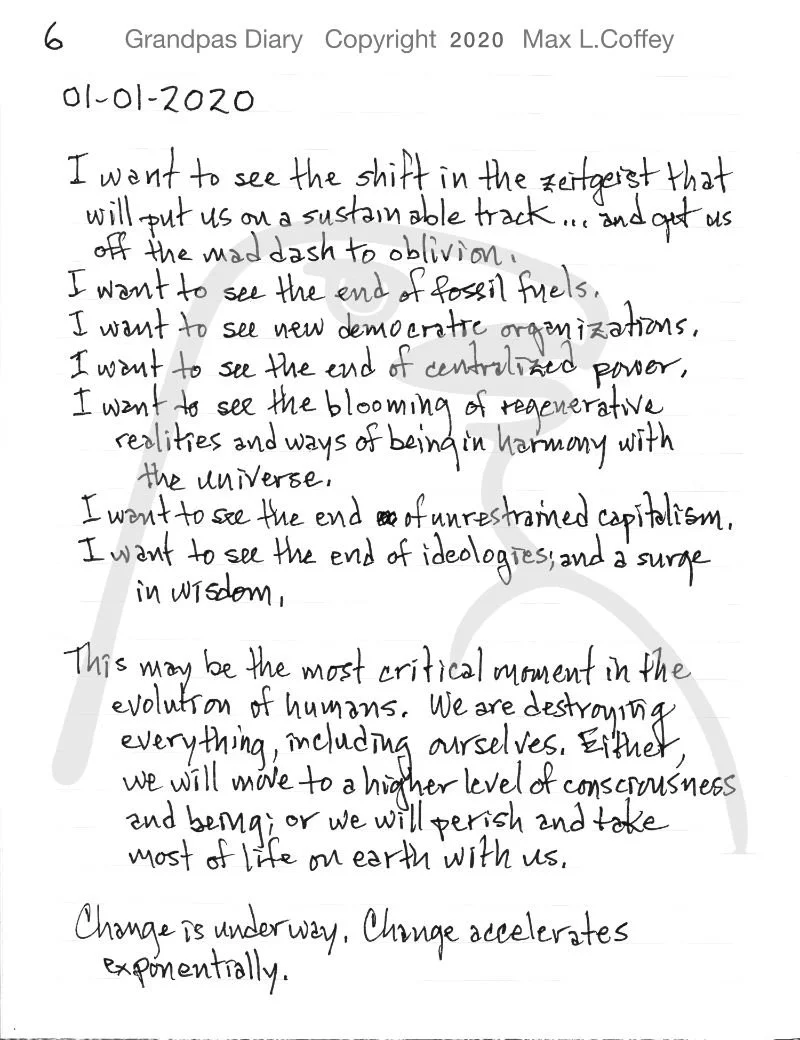 6 Grandpas Diary Copyright 2020 Max L.Coffey
01-01-2020
I want to see the shift in the zeitgeist that
will put us on a sustainable track... and get us
off the mad dash to oblivion.
I want to see the end of fossil fuels.
I want to see new democratic organizations.
I want to see the end of centralized power.
I want to see the blooming of regenerative
realities and ways of being in harmony with
the universe.
I want to see the end of unrestrained capitalism.
I want to see the end of ideologies; and a surge
in wisdom.
This may be the most critical moment in the
evolution of humans. We are destroying
everything, including ourselves. Either,
we will move to a higher level of consciousness
and being; or we will perish and take
most of life on earth with us.
Change is underway. Change accelerates
exponentially.